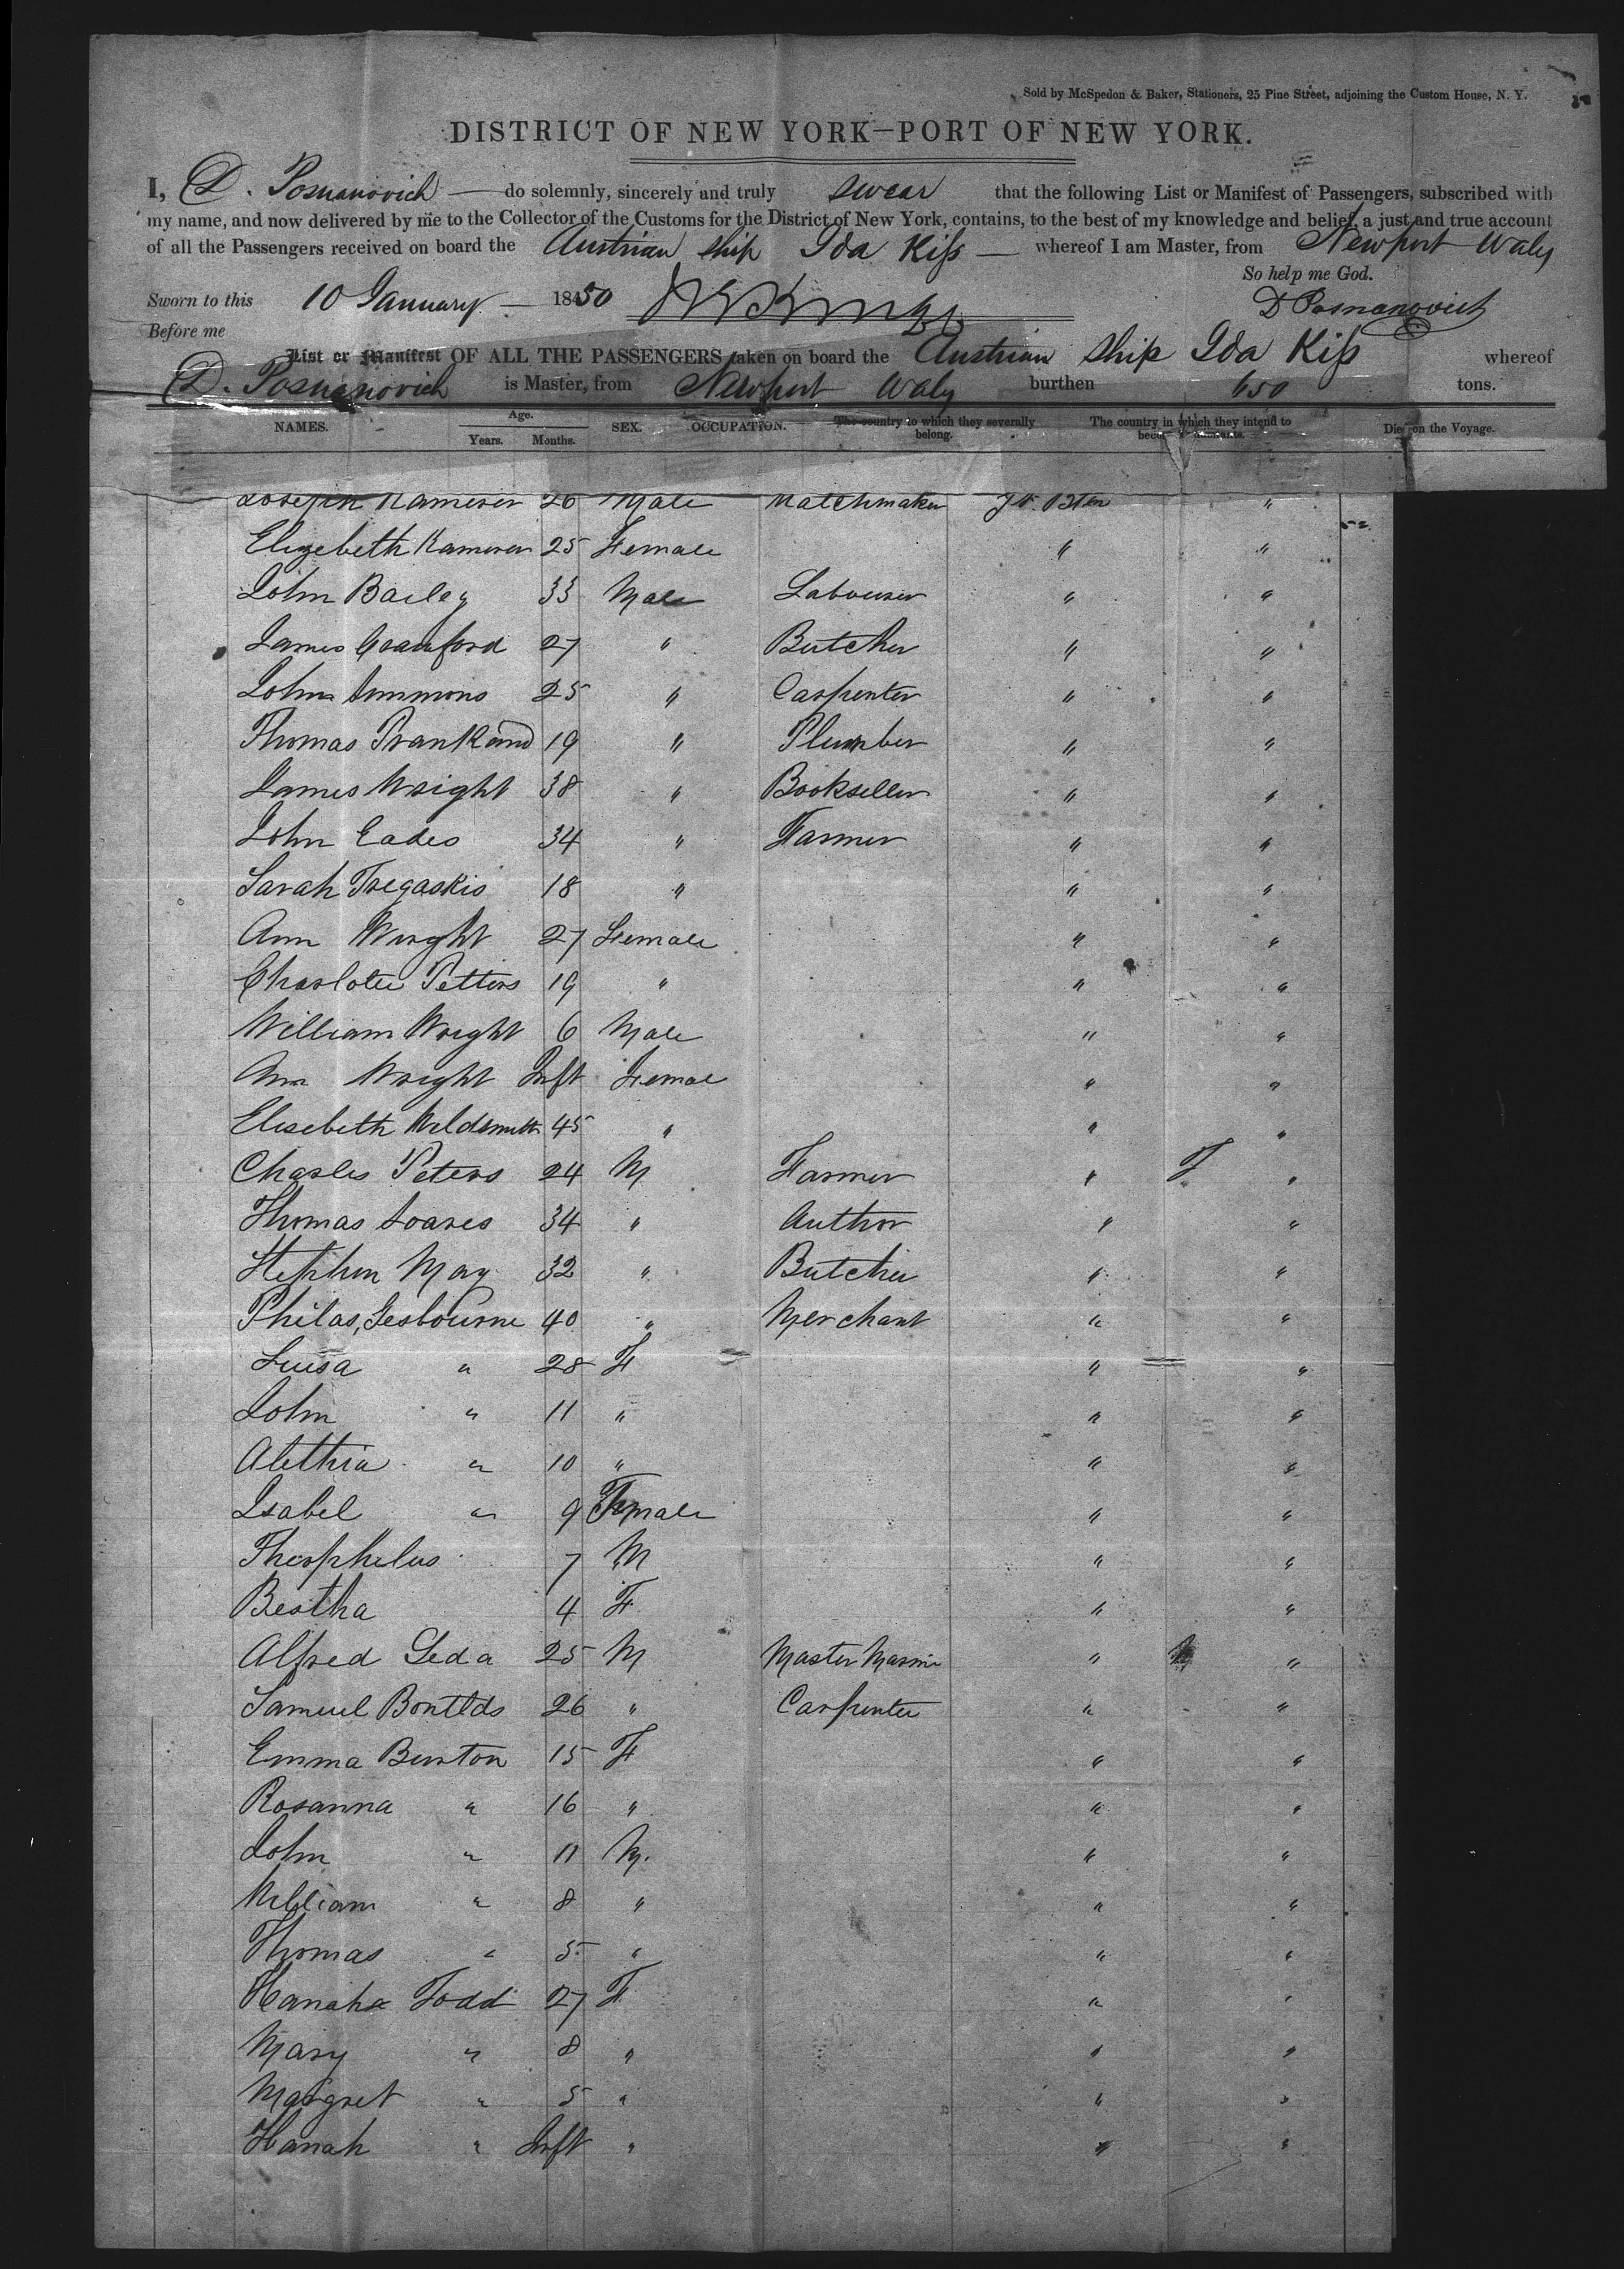 Sold by McSpedon & Baker, Stationers, 25 Pine Street, adjoining the Custom House, N. Y.
DISTRICT OF NEW YORK—PORT OF NEW YORK.
I, D. Posnanovich — do solemnly, sincerely and truly swear that the following List or Manifest of Passengers, subscribed with
my name, and now delivered by me to the Collector of the Customs for the District of New York, contains, to the best of my knowledge and belief, a just and true account
of all the Passengers received on board the Austrian ship Ida Kiss — whereof I am Master, from Newport Wales
So help me God.
Sworn to this 10 January — 1850
D Posnanovich
Before me
List or Manifest OF ALL THE PASSENGERS taken on board the Austrian ship Ida Kiss whereof
D. Posnanovich is Master, from Newport Wales burthen 650 tons.
NAMES. Age. Years. Months. SEX. OCCUPATION. The country to which they severally belong. The country in which they intend to Died on the Voyage.
Joseph Kameron 26 Male Matchmaker Gt. Bten "
Elizebeth Kameron 25 Female " "
John Bailey 33 Male Labourer " "
James Granford 27 " Butcher " "
John Simmons 25 " Carpenter " "
Thomas 19 " Plumber " "
James Wright 38 " Bookseller " "
John Eades 34 " Farmer " "
Sarah Tregaskis 18 " " "
Ann Wright 27 Female " "
Charlotte Petters 19 " " "
William Wright 6 Male " "
Ann Wright Inft Femae " "
Elisebeth Wildsmith 45 " " "
Charles Peters 24 M Farmer " "
Thomas Soares 34 " Author " "
Stephen May 32 " Butcher " "
Philas, Gesbourne 40 " Merchant " "
Luisa " 28 F " "
John " 11 " " "
Alethia " 10 " " "
Isabel " 9 Female " "
Theophelus 7 M " "
Bertha 4 F " "
Alfred Leda 25 M Master Marin " "
Samuel 26 " Carpenter " "
Emma Burton 15 F " "
Rosanna " 16 " " "
John " 11 M. " "
William " 8 " " "
Thomas " 5 " " "
Hanaha Todd 27 F " "
Mary " 8 " " "
Margret " 5 " " "
Hanah " Inft " " "